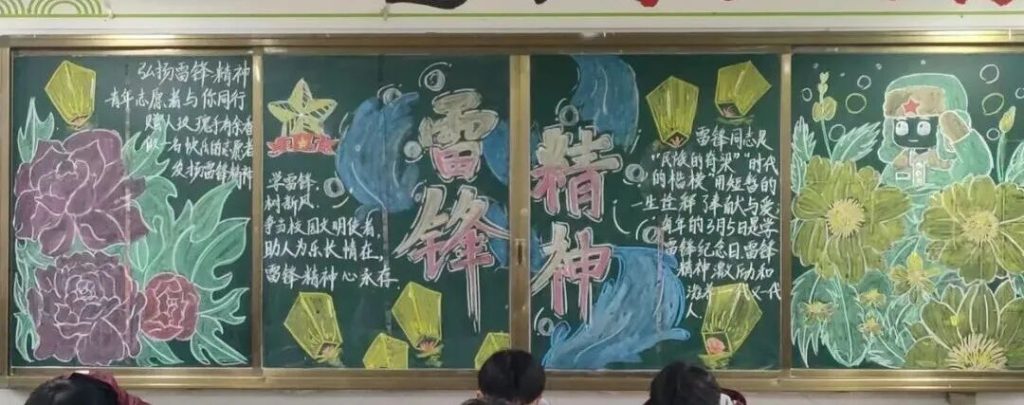 弘扬雷锋精神
青年志愿者与你同行
赠人玫瑰手有余香
做一名快乐的志愿者
发扬雷锋精神
学雷锋
树新风
争当校园文明使者,
助人为乐长情在,
雷锋精神心永存.
雷锋
精神
雷锋同志是
"民族的脊梁"时代
的楷模 用短暂的
一生诠释了奉献与爱
每年的3月5日是学
雷锋纪念日,雷锋
精神激励和
一代又一代
人